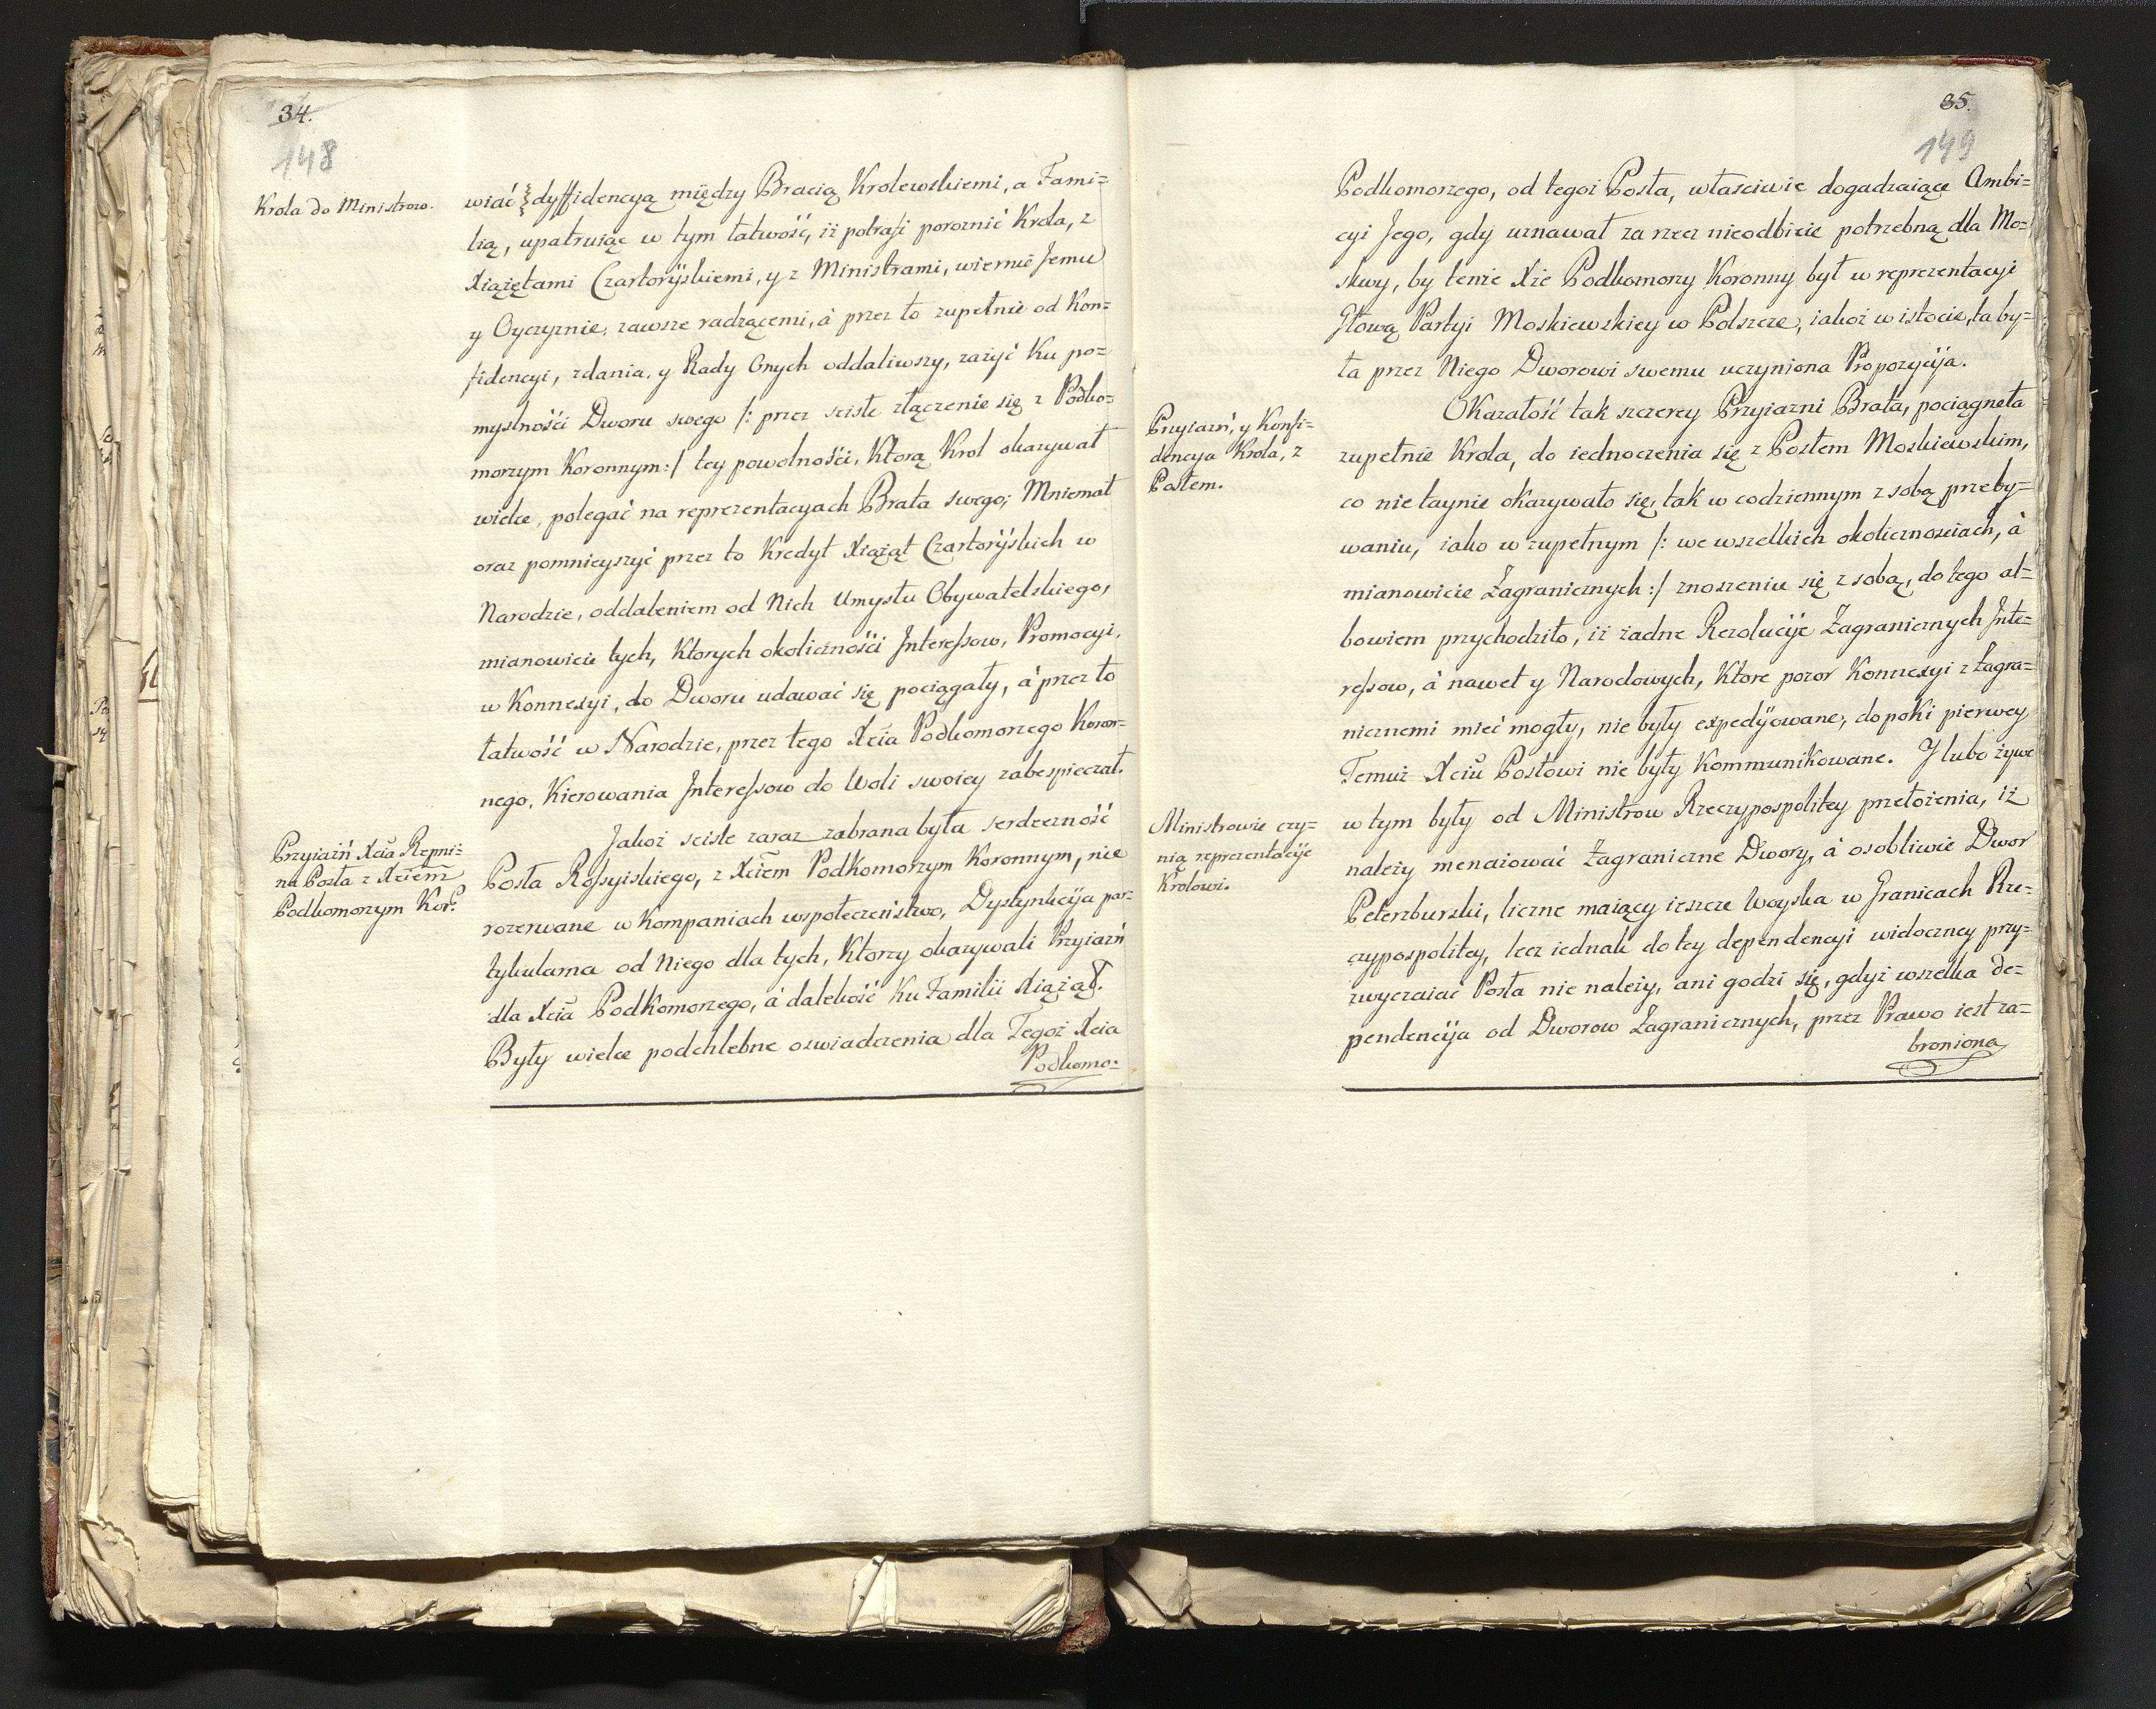 34.
148
Krola do Ministrow.
wiać dyffidencyą między Bracią Krolewskiemi, a Fami=
lią, upatruiąc w tym łatwość, iż potrafi poroznić Krola, z
Xiążętami Czartoryskiemi, y z Ministrami, wiernie Jemu
y Oyczyznie, zawsze radzącemi, á przez to zupełnie od Kon=
fidencyi, zdania, y Rady Onych oddaliwszy, zażyć Ku po=
myslności Dworu swego /: przez scisłe złączenie się z Podko=
morzym Koronnym :/ tey powolności, Ktorą Krol okazywał
wielce, polegać na reprezentacyach Brata swego; Mniemał
oraz pomnieyszyć przez to Kredyt Xiążąt Czartoryskich w
Narodzie, oddaleniem od Nich Umysłu Obywatelskiego,
mianowicie tych, Ktorych okoliczności Interessow, Promocyi,
w Konnexyi, do Dworu udawać się pociągały, á przez to
łatwość w Narodzie, przez tego Xcia Podkomorzego Koron=
nego, Kierowania Interessow do Woli swoiey zabespieczał.
Przyiaźń Xcia Repni=
na Posła z Xciem
Podkomorzym Kor:
Jakoż scisle zaraz zabrana była serdeczność
Posła Rossyiskiego, z Xciem Podkomorzym Koronnym, nie
rozerwane w Kompaniach wspołeczeństwo, Dystynkcyja par=
tykularna od Niego dla tych, Ktorzy okazywali Przyiaźń
dla Xcia Podkomorzego, á dalekość Ku Familii Xiążąt.
Były wielce podchlebne oswiadczenia dla Tegoż Xcia
Podkomo=
35.
149
Podkomorzego, od tegoż Posła, własciwie dogadzaiące Ambi=
cyi Jego, gdy uznawał za rzecz nieodbicie potrzebną dla Mo=
skwy, by tenże Xże Podkomorzy Koronny był w reprezentacyi
Głową Partyi Moskiewskiey w Polszcze, iakoż w istocie, ta by=
ła przez Niego Dworowi swemu uczyniona Propozycyja.
Przyiaźń, y Konfi=
dencya Krola, z
Posłem.
Okazałość tak szczerey Przyiazni Brata, pociągneła
zupełnie Krola, do iednoczenia się z Posłem Moskiewskim,
co nie taynie okazywało się, tak w codziennym z sobą przeby=
waniu, iako w zupełnym /: we wszelkich okolicznosciach, á
mianowicie Zagranicznych :/ znoszeniu się z sobą, do tego al=
bowiem przychodziło, iż żadne Rezolucyje Zagranicznych Inte=
ressow, á nawet y Narodowych, Ktore pozor Konnexyi z Zagra=
nicznemi mieć mogły, nie były expedyowane, dopoki pierwey
Temuż Xciu Posłowi nie były Kommunikowane. Y lubo żywe
Ministrowie czy=
nią reprezentacyje
Krolowi.
w tym były od Ministrow Rzeczypospolitey przełożenia, iż
należy menaiować Zagraniczne Dwory, á osobliwie Dwor
Peterzburski, liczne maiący ieszcze Woyska w Granicach Rze=
czypospolitey, lecz iednak do tey dependencyi widoczney przy=
zwyczaiać Posła nie należy, ani godzi się, gdyż wszelka de=
pendencyja od Dworow Zagranicznych, przez Prawo iest za=
broniona